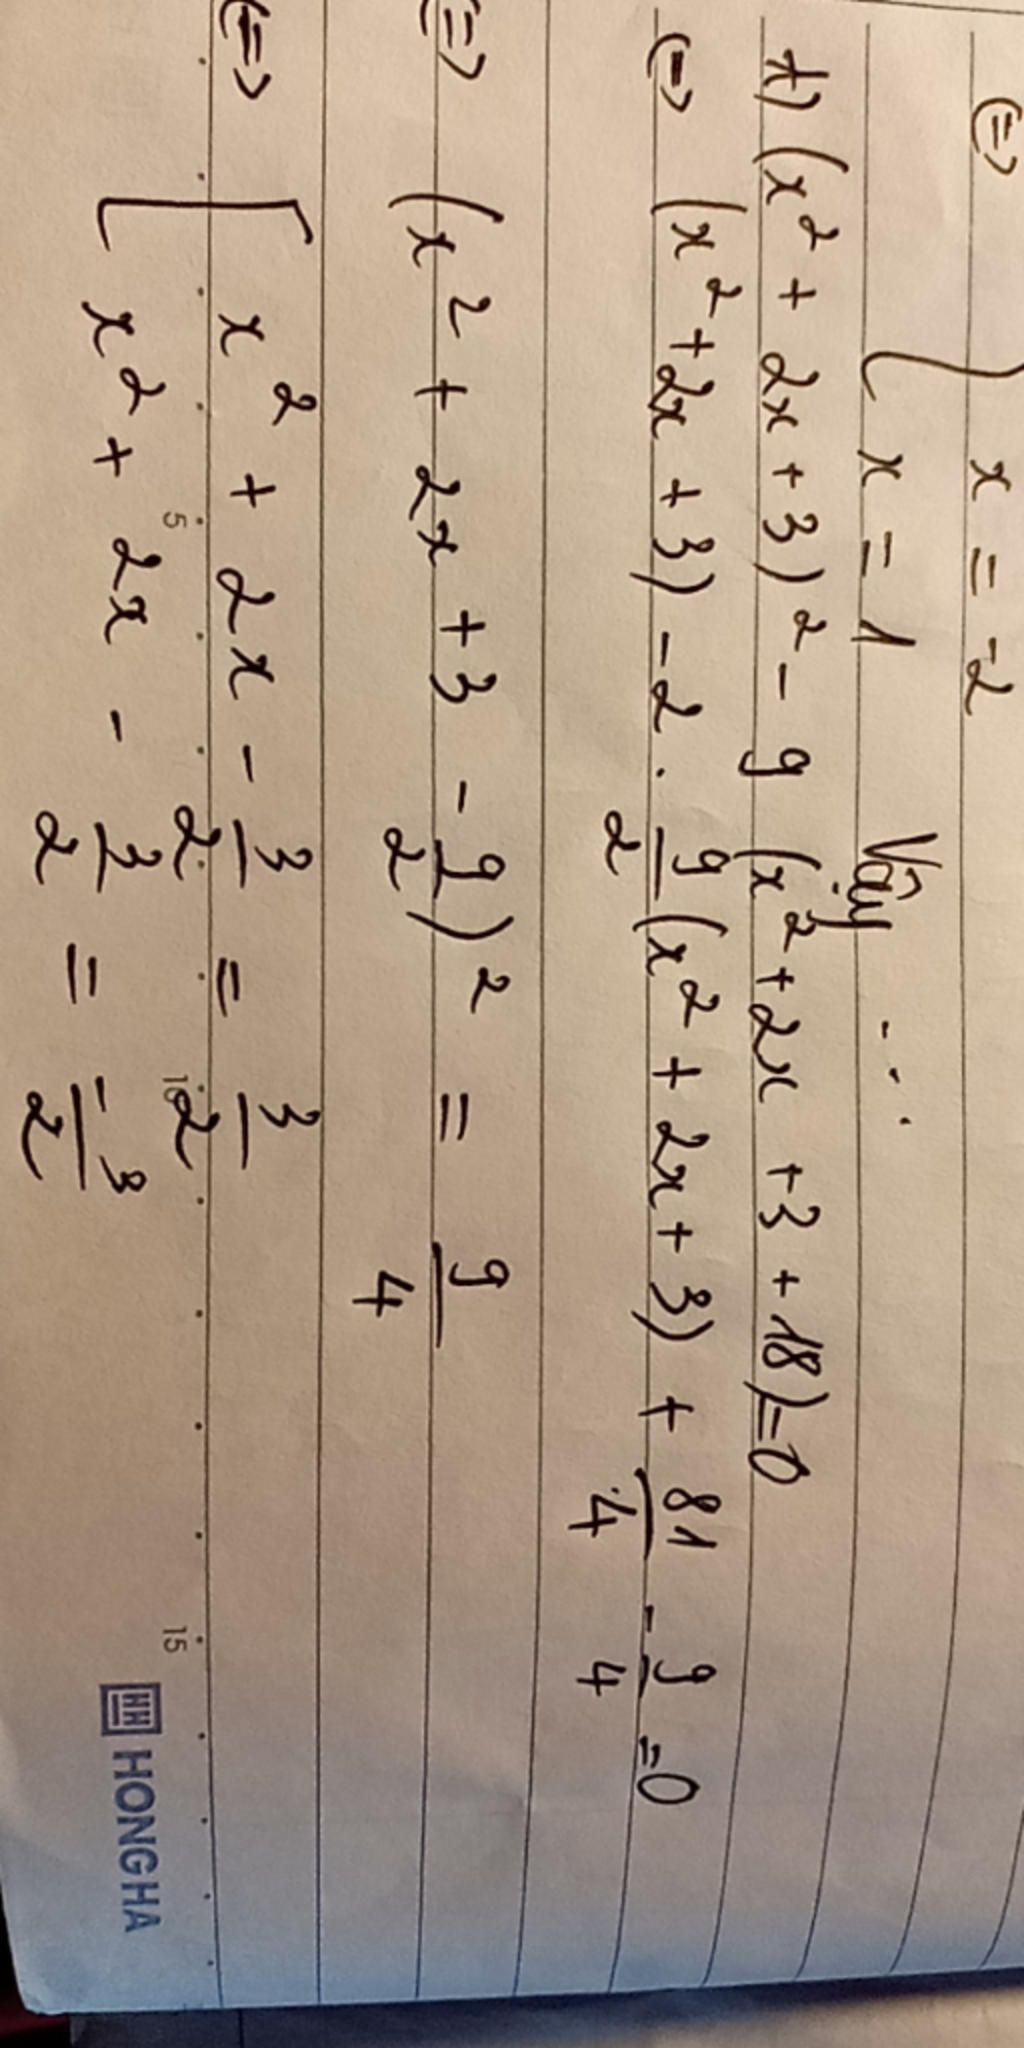 (=> x = -2
x = 1 Vậy ...
t) (x² + 2x + 3)² - 9 (x² + 2x + 3 + 18) = 0
(=> (x² + 2x + 3) - 2 . 9/2 (x² + 2x + 3) + 81/4 - 9/4 = 0
(=> (x² + 2x + 3 - 9/2)² = 9/4
(=> [ x² + 2x - 3/2 = 3/2
x² + 2x - 3/2 = -3/2
5 10 15
HH HONG HA